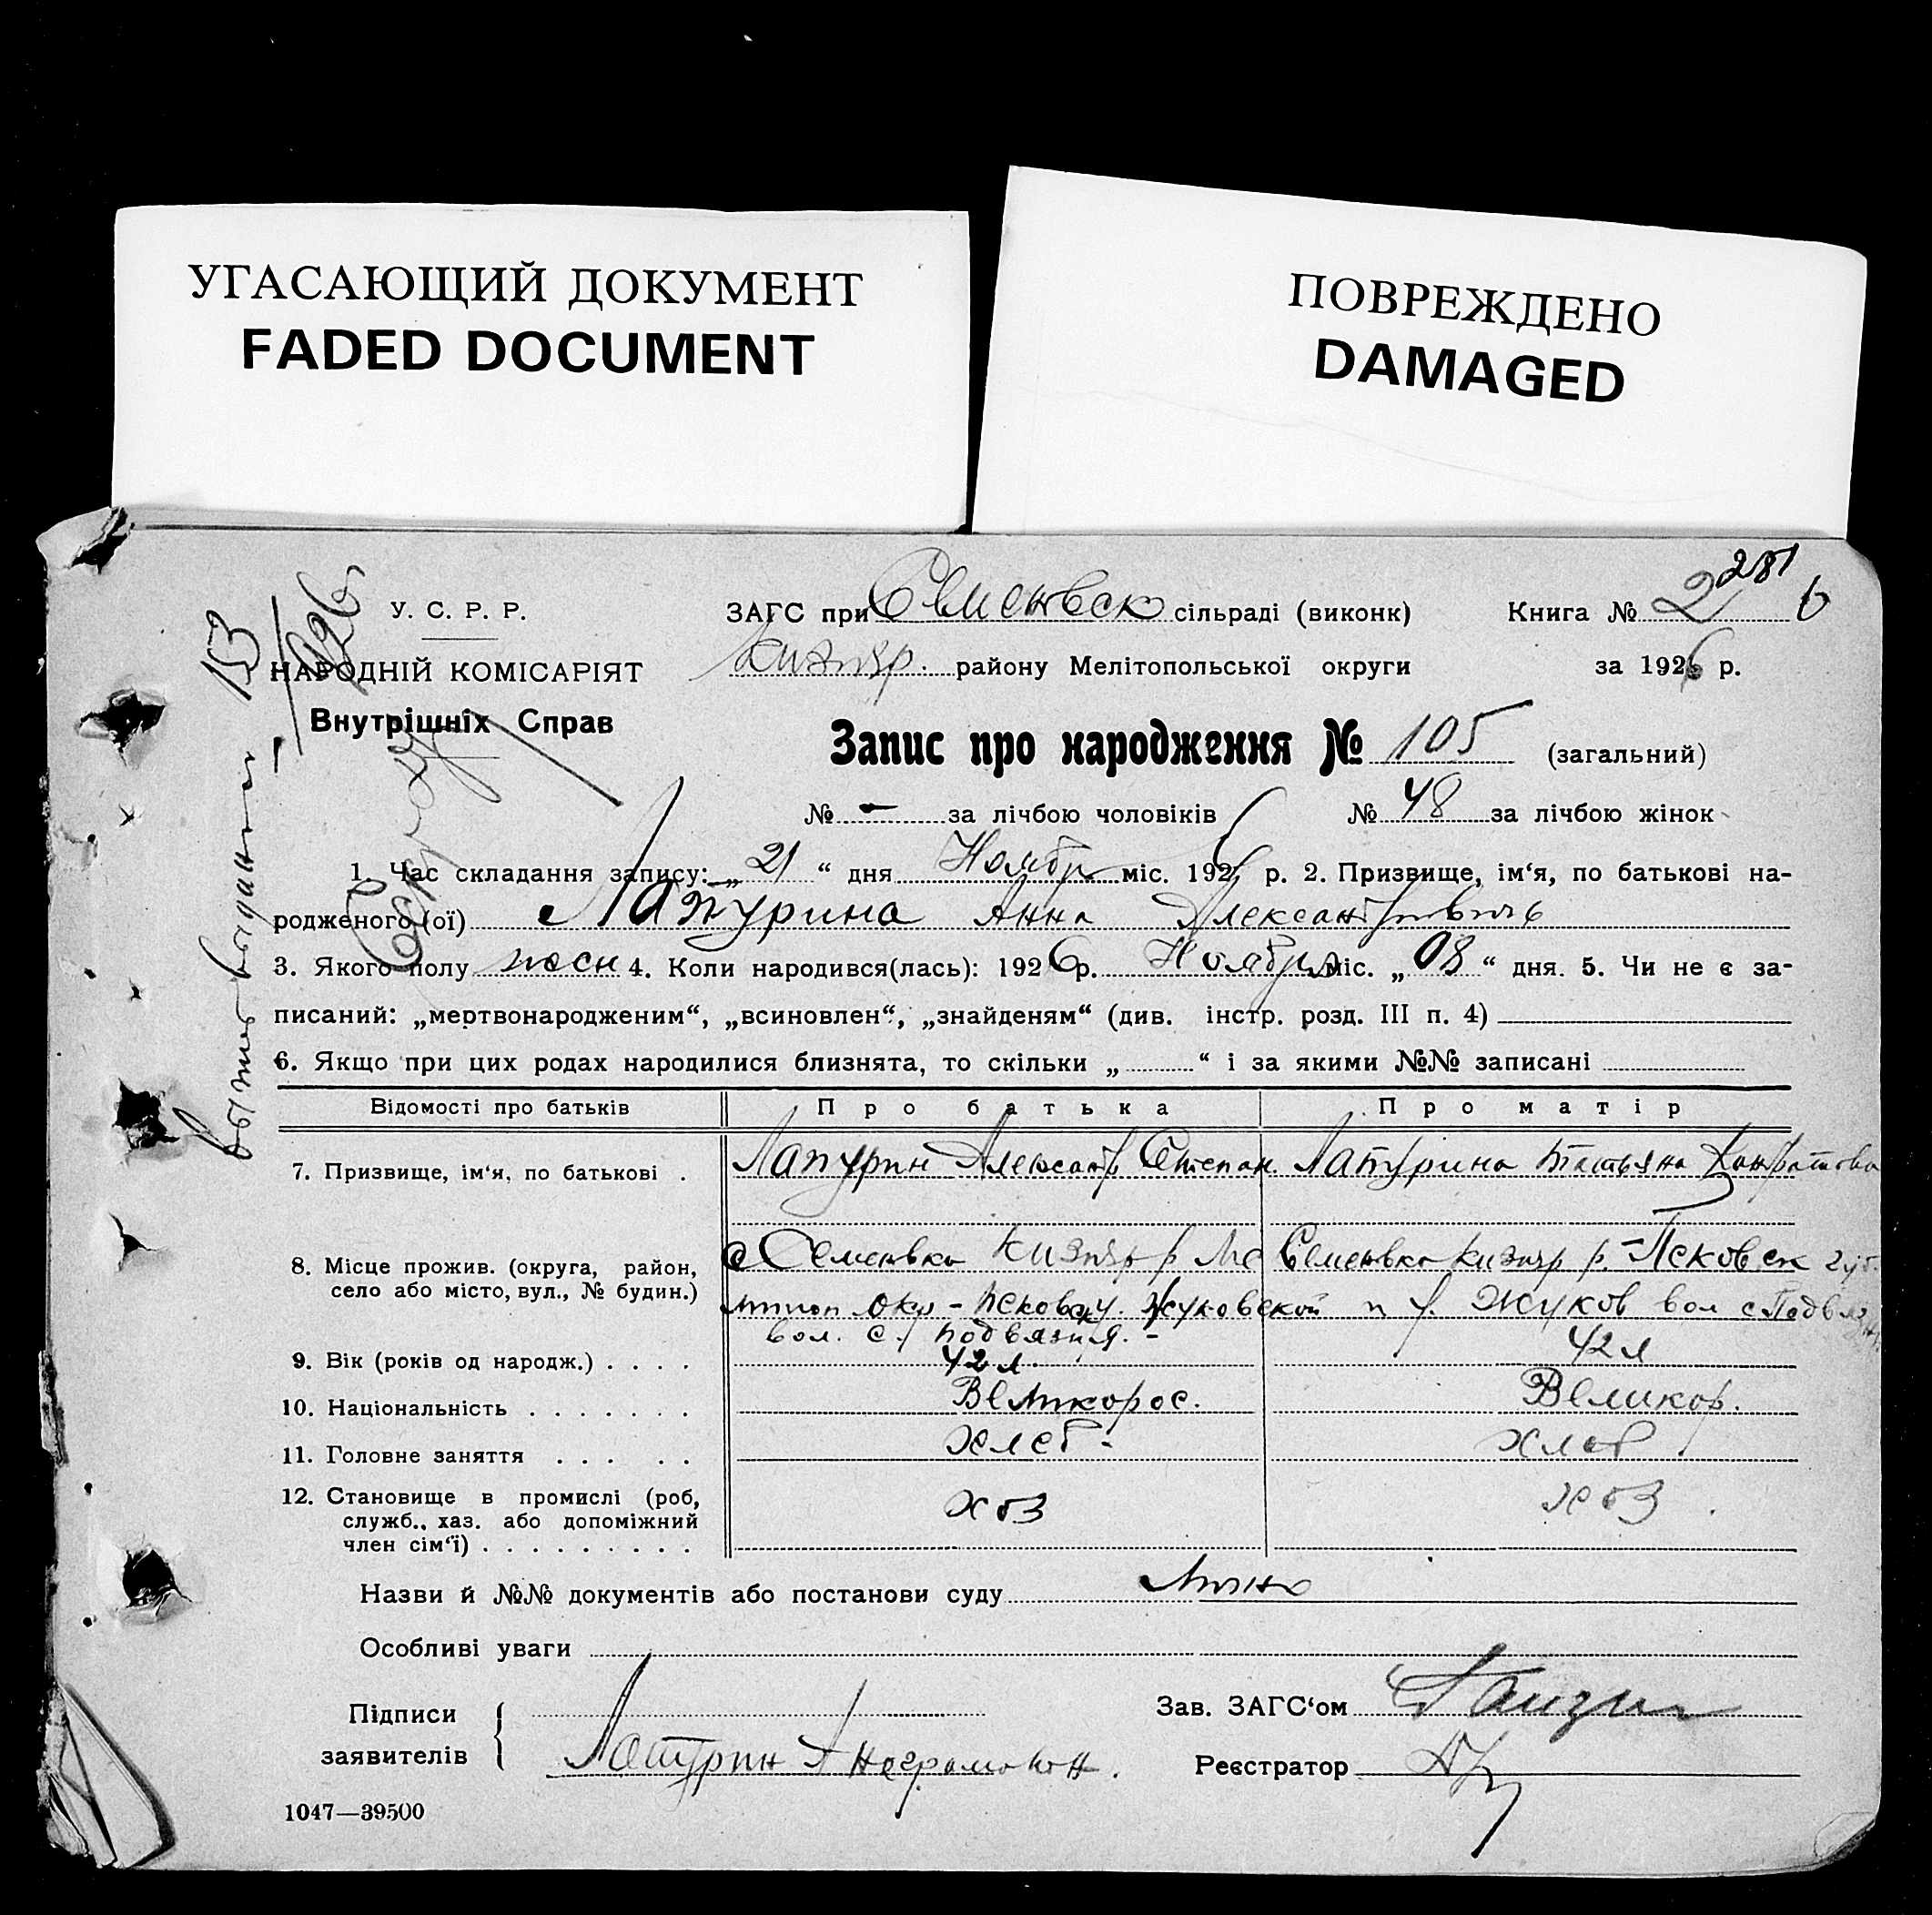 УГАСАЮЩИЙ ДОКУМЕНТ
FADED DOCUMENT
ПОВРЕЖДЕНО
DAMAGED
281
У. С. Р. Р.
ЗАГС при Семеновск сільраді (виконк)
Книга № 2
НАРОДНІЙ КОМІСАРІЯТ
Кизияр. району Мелітопольської округи
за 1926 р.
Внутрішніх Справ
Запис про народження № 105 (загальний)
№ - за лічбою чоловіків № 48 за лічбою жінок
1. Час складання запису: „ 21 “ дня Ноября міс. 1926 р. 2. Призвище, ім‘я, по батькові на-
родженого (ої) Лапурина Анна Александровна
3. Якого полу жен 4. Коли народився(лась): 1926 р. Ноября міс. „ 08 “ дня. 5. Чи не є за-
писаний: „мертвонародженим“, „всиновлен“, „знайденям“ (див. інстр. розд. III п. 4)
6. Якщо при цих родах народилися близнята, то скільки „ “ і за якими №№ записані
Відомості про батьків
Про батька
Про матір
7. Призвище, ім‘я, по батькові .
Лапурин Александр Степан.
Лапурина Татьяна Кондратовна
8. Місце прожив. (округа, район,
село або місто, вул., № будин.)
с Семеновка Кизияр р Ме
литоп окр - Псков Жуковской
вол. с. Подвязня. -
Семеновка Кизияр р. - Псковск губ.
Жуков вол с Подвяз
9. Вік (років од народж.) . . . .
42 л.
42 л
10. Національність . . . . . . .
Великорос.
Великор.
11. Головне заняття . . . . .
Хлеб -
Хлеб
12. Становище в промислі (роб,
служб., хаз. або допоміжний
член сім‘ї) . . . . . . . . .
хоз
хоз
Назви й №№ документів або постанови суду Лично
Особливі уваги
Підписи
заявителів
Лапурин А неграмотн.
Зав. ЗАГС‘ом
Реєстратор
1047—39500
153
1926